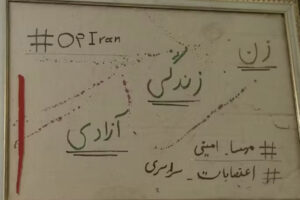 #OpIran
زن
زندگی
آزادی
# مهسا_امینی
# اعتصابات_سراسری